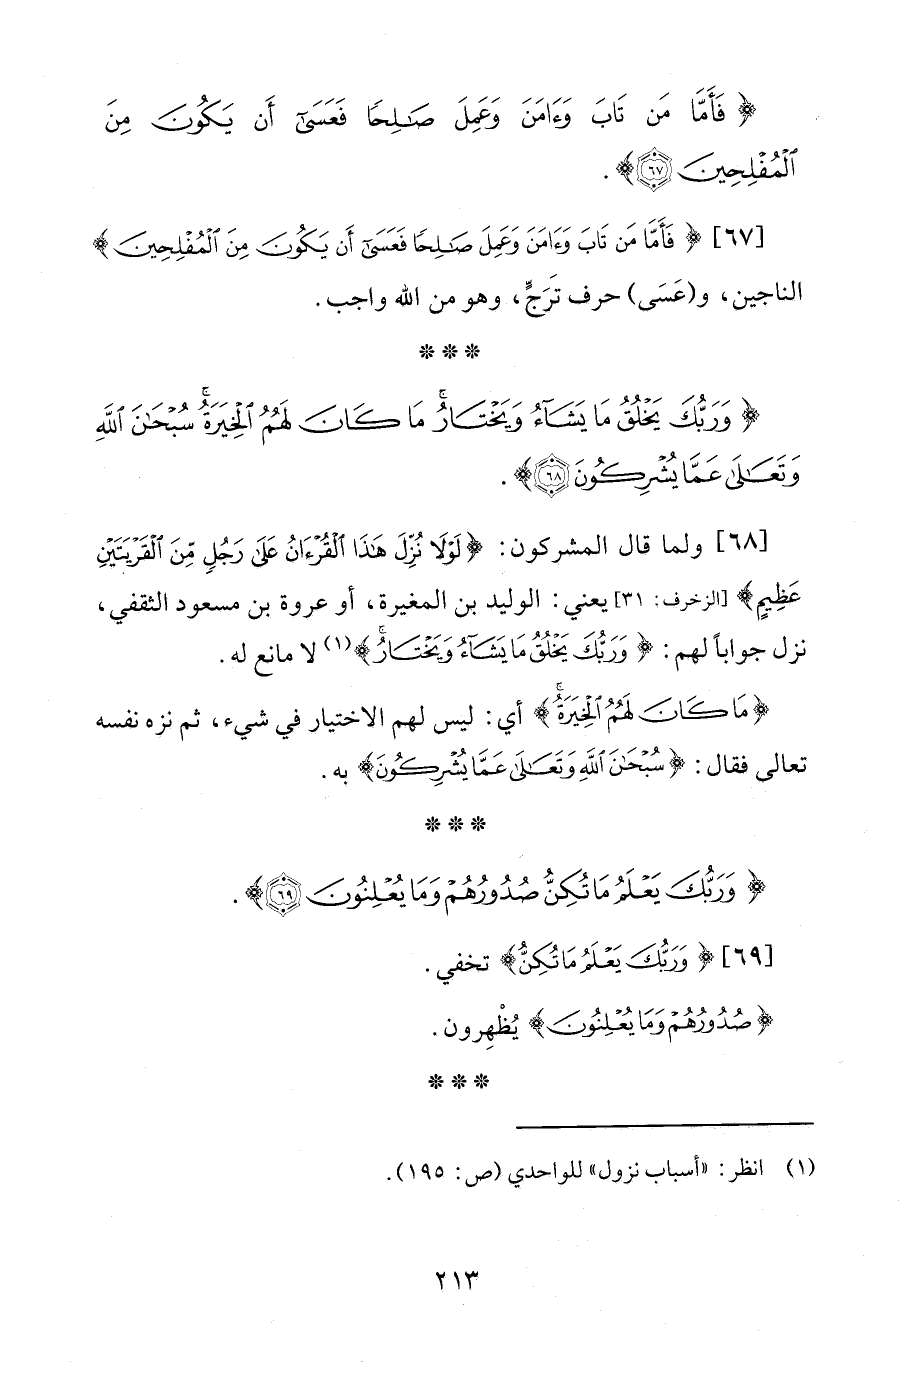 ﴿ فَأَمَّا مَن تَابَ وَءَامَنَ وَعَمِلَ صَـٰلِحًا فَعَسَىٰٓ أَن يَكُونَ مِنَ
ٱلْمُفْلِحِينَ ۝٦٧ ﴾ .
[٦٧] ﴿ فَأَمَّا مَن تَابَ وَءَامَنَ وَعَمِلَ صَـٰلِحًا فَعَسَىٰٓ أَن يَكُونَ مِنَ ٱلْمُفْلِحِينَ ﴾
الناجين، و(عَسَى) حرف تَرَجٍّ، وهو من الله واجب.
***
﴿ وَرَبُّكَ يَخْلُقُ مَا يَشَآءُ وَيَخْتَارُ ۗ مَا كَانَ لَهُمُ ٱلْخِيَرَةُ ۚ سُبْحَـٰنَ ٱللَّهِ
وَتَعَـٰلَىٰ عَمَّا يُشْرِكُونَ ۝٦٨ ﴾ .
[٦٨] ولما قال المشركون: ﴿ لَوْلَا نُزِّلَ هَـٰذَا ٱلْقُرْءَانُ عَلَىٰ رَجُلٍ مِّنَ ٱلْقَرْيَتَيْنِ
عَظِيمٍ ﴾ [الزخرف: ٣١] يعني: الوليد بن المغيرة، أو عروة بن مسعود الثقفي،
نزل جواباً لهم: ﴿ وَرَبُّكَ يَخْلُقُ مَا يَشَآءُ وَيَخْتَارُ ۗ ﴾(١) لا مانع له.
﴿ مَا كَانَ لَهُمُ ٱلْخِيَرَةُ ۚ ﴾ أي: ليس لهم الاختيار في شيء، ثم نزه نفسه
تعالى فقال: ﴿ سُبْحَـٰنَ ٱللَّهِ وَتَعَـٰلَىٰ عَمَّا يُشْرِكُونَ ﴾ به.
***
﴿ وَرَبُّكَ يَعْلَمُ مَا تُكِنُّ صُدُورُهُمْ وَمَا يُعْلِنُونَ ۝٦٩ ﴾ .
[٦٩] ﴿ وَرَبُّكَ يَعْلَمُ مَا تُكِنُّ ﴾ تخفي.
﴿ صُدُورُهُمْ وَمَا يُعْلِنُونَ ﴾ يُظْهِرون.
***
(١) انظر: «أسباب نزول» للواحدي (ص: ١٩٥).
٢١٣